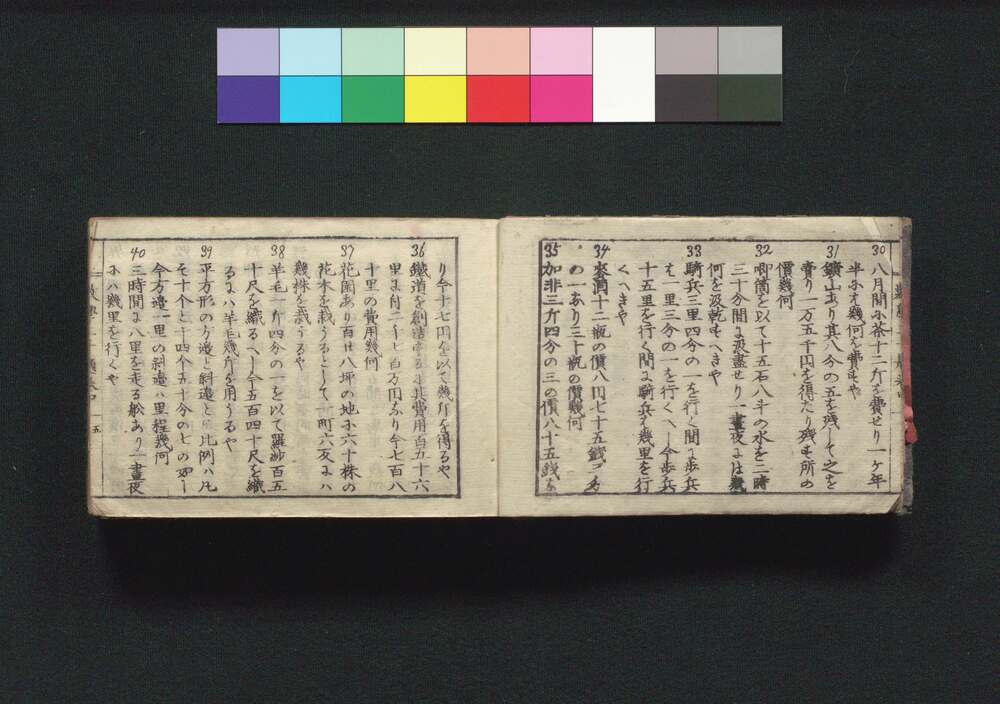 30
八月間ふ茶十二斤を費せり一ケ年
半ふて幾何を費すや
31
鑛山あり其八分の五を残して之を
賣り一万五千円を得たり残す所の
價幾何
32
喞筒を以て十五石八斗の水を二時
三十分間に汲盡せり一晝夜には幾
何を汲乾すへきや
33
騎兵三里四分の一を行く間に歩兵
は一里三分の一を行くへし今歩兵
十五里を行く間に騎兵は幾里を行
くへきや
34
麥酒十二瓶の價八円七十五錢
の一あり三十瓶の價幾何
35
加非三斤四分の三の價八十五錢な
り今十七円を以て幾斤を得るや
36
鐵道を創造するに其費用百五十六
里に付二千七百万円なり今七百八
十里の費用幾何
37
花園あり百廿八坪の地に六十株の
花木を栽うるとして一町六反には
幾株を栽うるや
38
羊毛一斤四分の一を以て羅紗百五
十尺を織るへし今五百四十尺を織
るには羊毛幾斤を用うるや
39
平方形の方邊と斜邊との比例は凡
そ十个と十四个五十分の七の如し
今方邊一里の斜邊は里程幾何
40
三時間に八里を走る舩あり一晝夜
には幾里を行くや
五